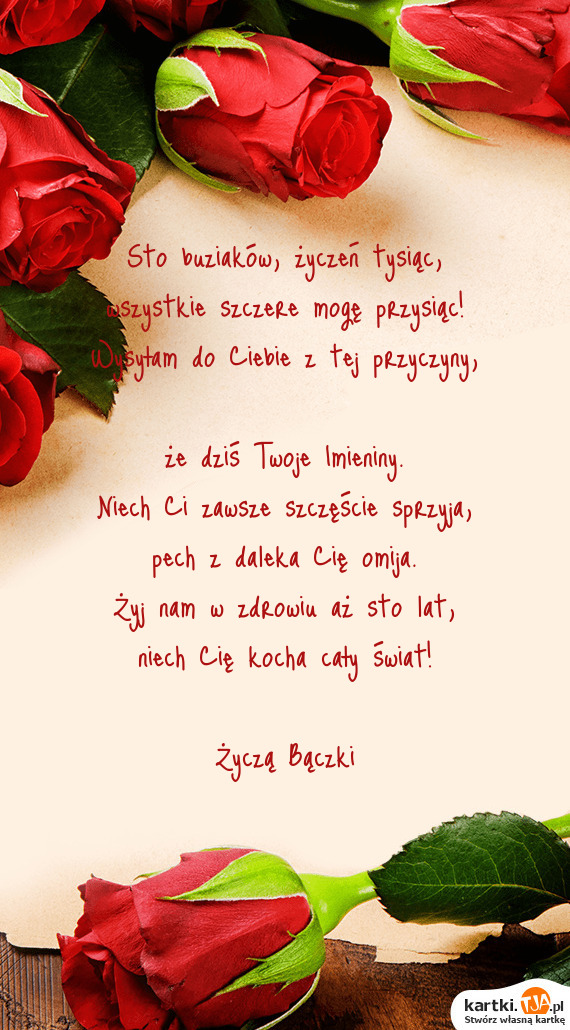 Sto buziaków, życzeń tysiąc,
wszystkie szczere mogę przysiąc!
Wysyłam do Ciebie z tej przyczyny,
że dziś Twoje Imieniny.
Niech Ci zawsze szczęście sprzyja,
pech z daleka Cię omija.
Żyj nam w zdrowiu aż sto lat,
niech Cię kocha cały świat!
Życzą Bączki
kartki.TJA.pl
Stwórz własną kartkę